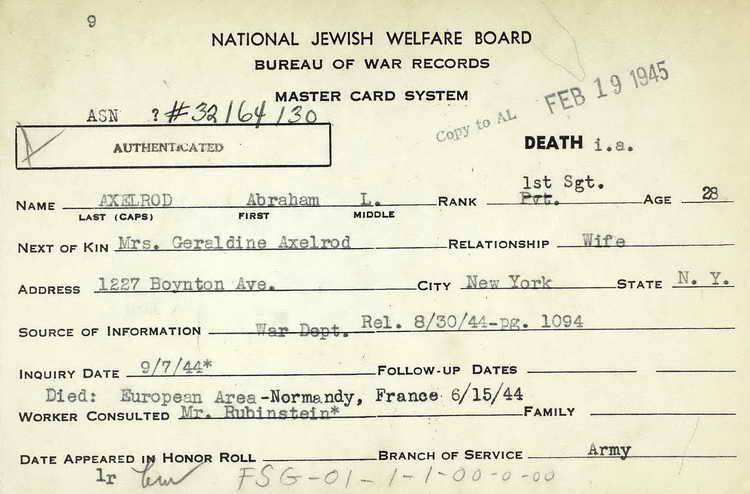 9
NATIONAL JEWISH WELFARE BOARD
BUREAU OF WAR RECORDS
MASTER CARD SYSTEM
FEB 19 1945
Copy to AL
ASN ? #32164130
AUTHENTICATED
DEATH i.a.
1st Sgt.
NAME AXELROD Abraham L. RANK Pvt. AGE 28
LAST (CAPS) FIRST MIDDLE
NEXT OF KIN Mrs. Geraldine Axelrod RELATIONSHIP Wife
ADDRESS 1227 Boynton Ave. CITY New York STATE N. Y.
SOURCE OF INFORMATION War Dept. Rel. 8/30/44-pg. 1094
INQUIRY DATE 9/7/44* FOLLOW-UP DATES
Died: European Area-Normandy, France 6/15/44
WORKER CONSULTED Mr. Rubinstein* FAMILY
DATE APPEARED IN HONOR ROLL BRANCH OF SERVICE Army
lr
FSG-01-1-1-00-0-00